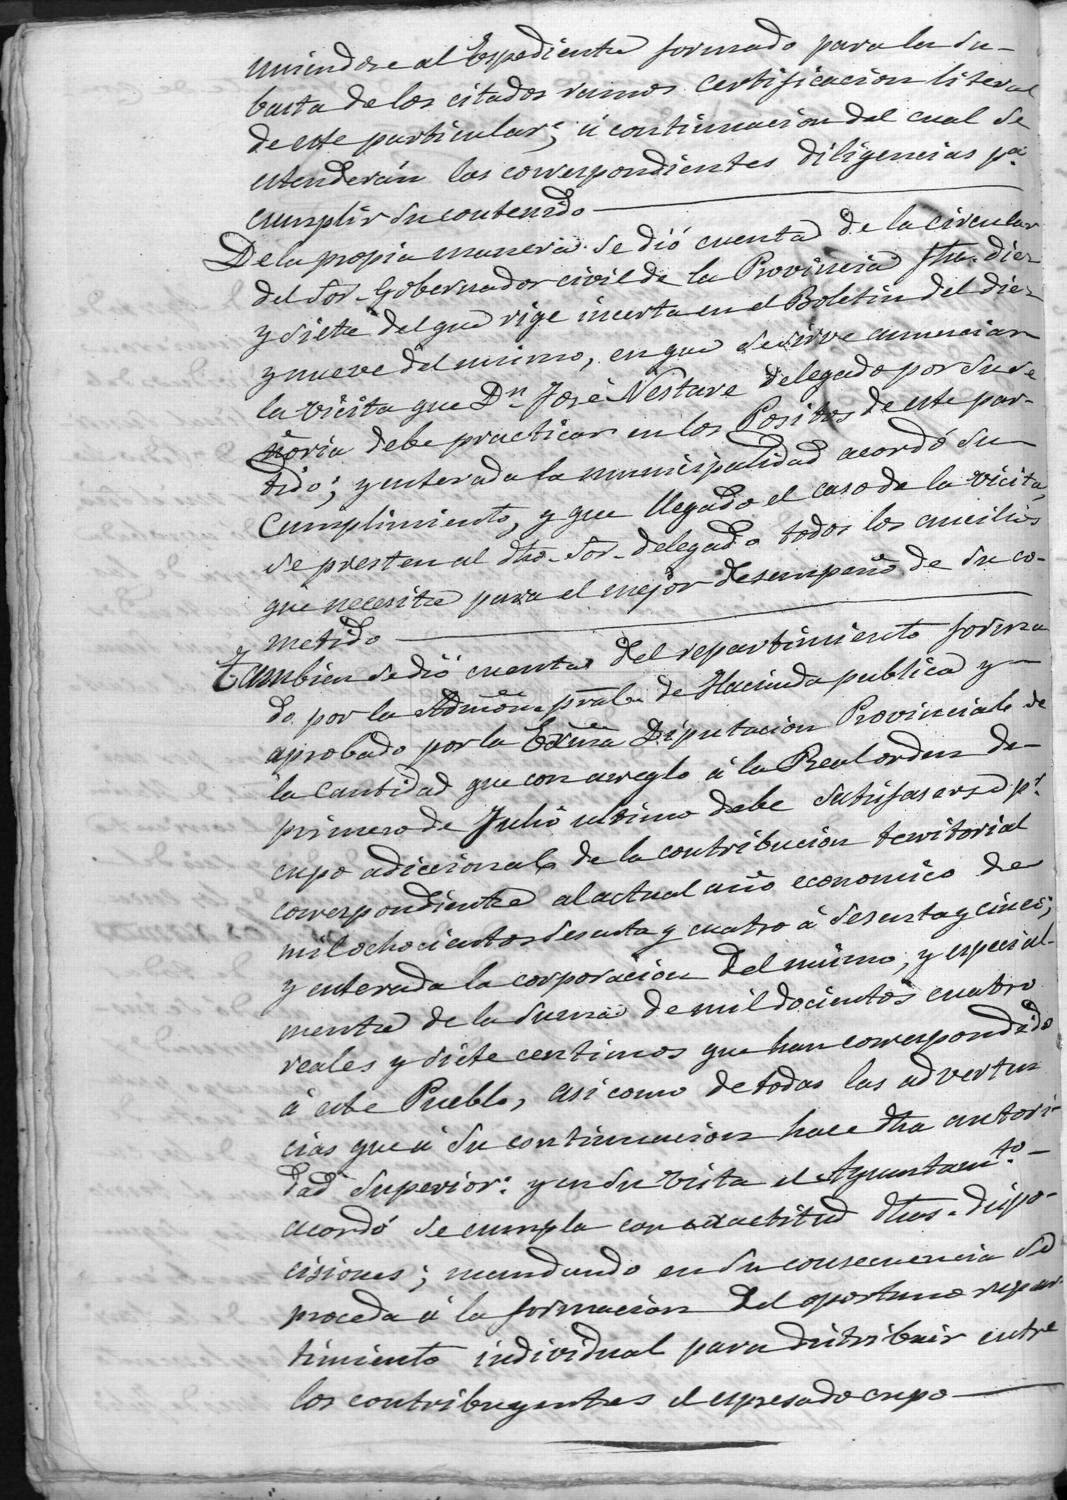 uniendose al Espediente formado para la su-
basta de los citados ramos certificacion literal
de este particular; á continuacion del cual se
estenderán las correspondientes diligencias pa.
cumplir su contenido
De la propia manera se dió cuenta de la circular
del Sor. Gobernador civil de la Provincia fha. diez
y siete del que rige incerta en el Boletin del diez
y nueve del mismo, en que se sirve anunciar
la vicita que Dn. José Nestare delegado por su se
ñoria debe practicar en los Positos de este par-
tido; y enterada la municipalidad acordó su
cumplimiento, y que llegado el caso de la vicita,
se presten al dho. Sor. delegado todos los aucilios
que necesite para el mejor desempeño de su co-
metido
Tambien se dió cuenta del repartimiento forma
do por la Admon. pral. de Hacienda publica y
aprobado por la Exma Diputacion Provincial de
la cantidad que con arreglo á la Real orden de
primero de Julio ultimo debe satisfaserse pr.
cupo adiccional de la contribucion territorial
correspondiente al actual año economico de
mil ochocientos sesenta y cuatro á sesenta y cinco;
y enterada la corporacion del mismo, y especial-
mente de la suma de mil docientos cuatro
reales y siete centimos que han correspondido
á este Pueblo, asi como de todas las adverten
cias que á su continuacion hace dha autori-
dad superior: y en su vista el Ayuntamto.
acordó se cumpla con exactitud dhas. dispo-
ciciones; mandando en su consecuencia se
proceda á la formacion del oportuno repar
timiento individual para distribuir entre
los contribuyentes el espresado cupo